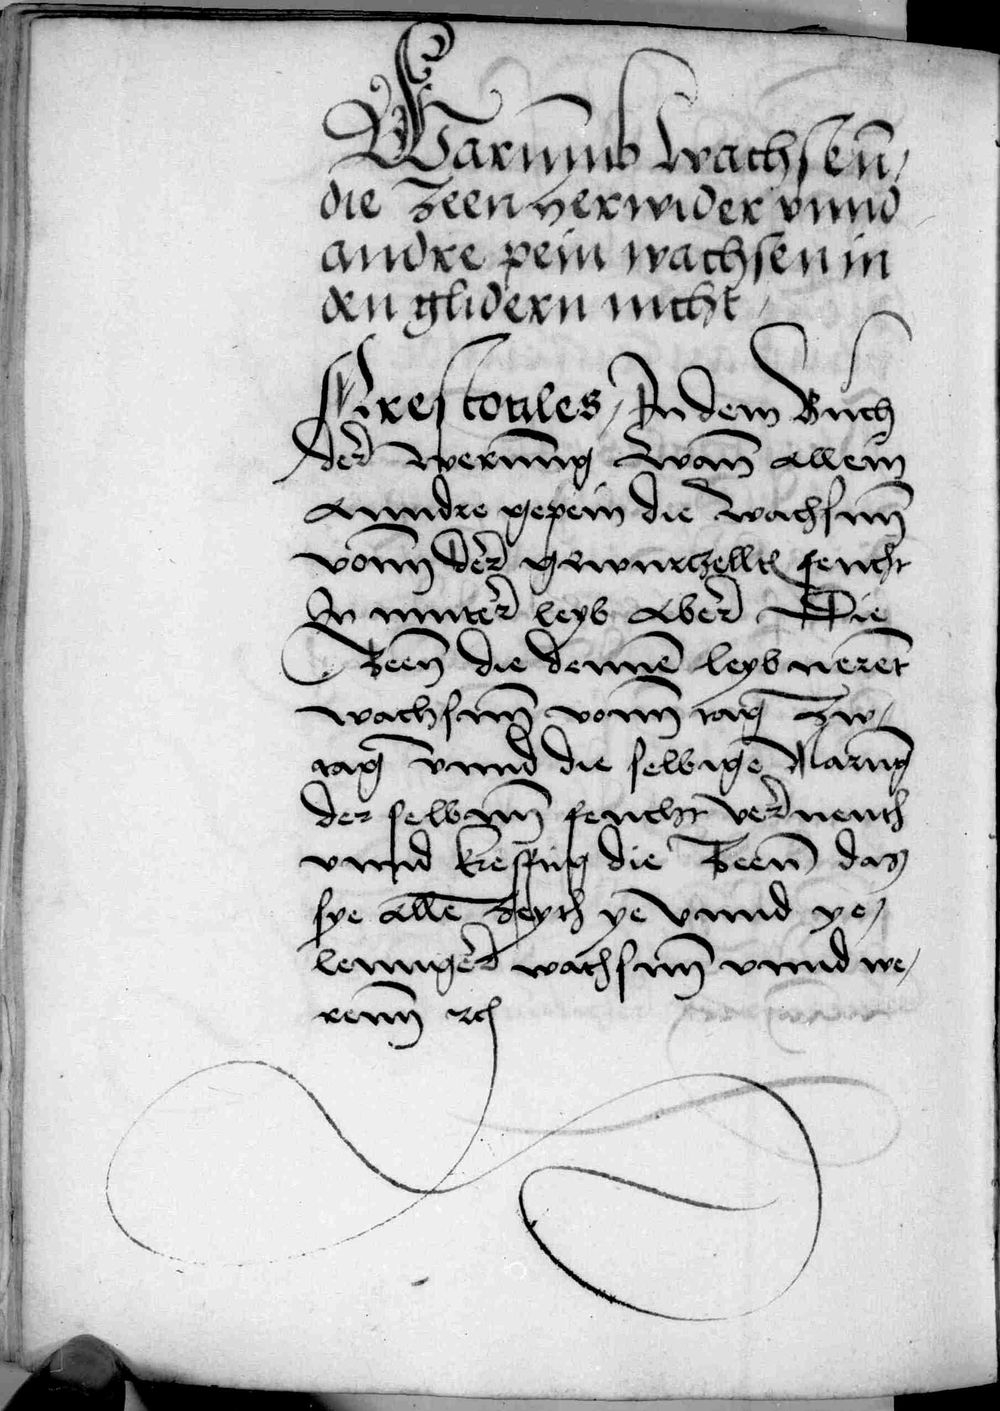 Warumb wachsenn /
die Zeen herwider vnnd
andre pein wachsen in
den glidern nicht /
Arestotiles / In dem Buch
der werung wan allein
Anndre gepein die wachsenn
vonn der gewurtzellt feucht
In muter leyb Aber Die
Zeen die dennē leyb nerent
wachsenn vonn tag zw /
tag vnnd die selbige Narung
der selbenn feucht vernenth
vnnd krefftig die Zeen das
sye alle zeyth ye vnnd ye /
lennger wachsenn vnnd we /
renn ꝛc